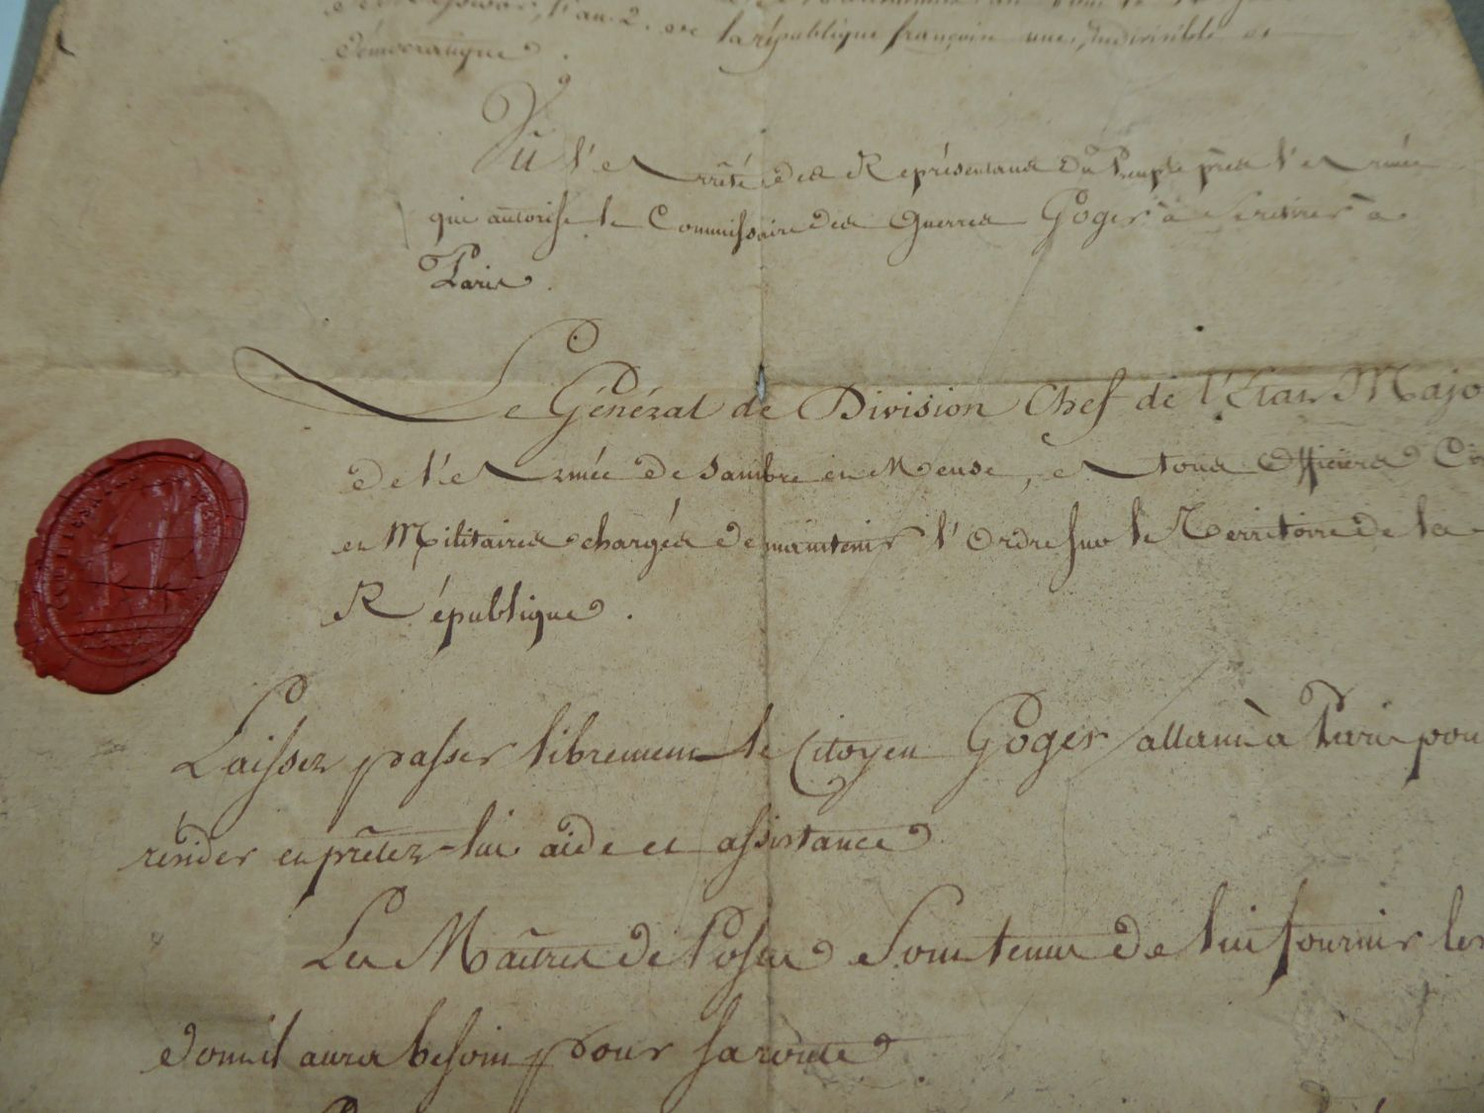 l'an 2. de la république françoise une, indivisible et
démocratique.
Vû l'Arrêté des Représentans du Peuple près l'Armée
qui autorise le Commissaire des Guerres Goger à se retirer à
Paris.
Le Général de Division Chef de l'Etat Majo
de l'Armée de Sambre et Meuse, et tous Officiers Ci
et Militaires chargés de maintenir l'Ordre sur le Territoire de la
République.
Laissez passer librement le Citoyen Goger allant à Paris pou
rendre et prêtez-lui aide et assistance
Les Maîtres de Poste sont tenus de lui fournir les
dont il aura besoin pour sa route